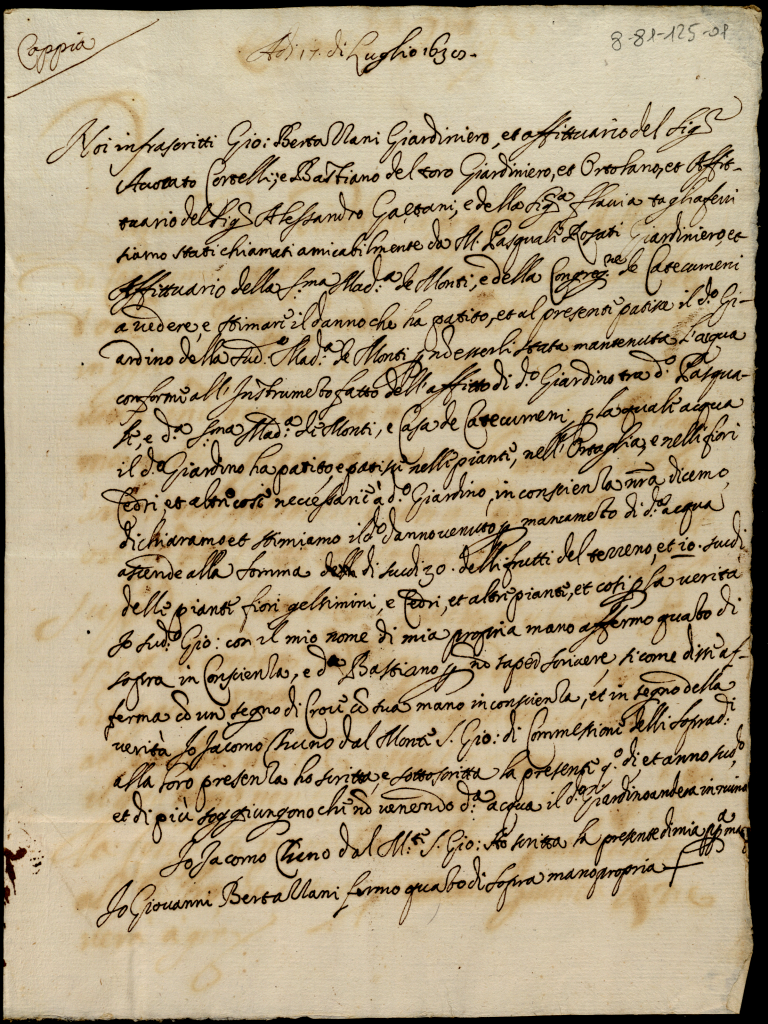 Coppia
8-81-125-01
Adi 17. di Luglio 1630.
Noi infrascritti Gio: Bertallani Giardiniero, et affittuario del Sig.r
Avocato Cortelli; e Bastiano del toro Giardiniero, et Ortolano, et Affit-
tuario del Sig.r Alessandro Gaetani, e della Sig.a flavia tagliaferri
siamo stati chiamati amicabilmente da M. Pasquale Rosati Giardiniero, et
Affittuario della S.ma Mad.a de Monti, e della Congreg.ne de Catecumeni
a vedere, e stimare il danno che ha patito, et al presente patisce il d.o Gi-
ardino della Sud.a Mad.a de Monti p nõ esserli stata mantenuta l'acqua
conforme all'Instrumẽto fatto dell'affitto di d.o Giardino tra d.o Pasqua-
le, e d.a S.ma Mad.a de Monti, e Casa de Catecumeni, p la quale acqua
il d.o Giardino ha patito e patisce nelle piante, nell'Ortaglia, e nelli fiori
Cedri, et altre cose necessarie à d.o Giardino, in conscienza nr̃a dicemo,
dichiaramo et stimiamo il d.o danno venuto p mancamẽto di d.a acqua
ascende alla somma di scudi 30. delli frutti del terreno, et 10. scudi
delle piante fiori gelsimini, e Cedri, et altre piante, et così p la verità
Io sud.o Gio: con il mio nome di mia propria mano affermo quãto di
sopra in Conscienza, e d.o Bastiano p nõ saper scrivere, si come disse af-
ferma cõ un segno di Croce cõ sua mano in conscienza, et in segno della
verità Io Jacomo Chieno dal Monte S. Gio: di Commessione delli soprad.i
alla loro presenza ho scritta, e sottoscritta la presente q.o dì et anno sud.o
et di più soggiungono che nõ venendo d.a acqua il d.o Giardino anderà in ruina
Io Jacomo Chieno dal M.te S. Gio: ho scritta la presente di mia pp.a mano
Io Giovanni Bertallani fermo quãto di sopra mano propria